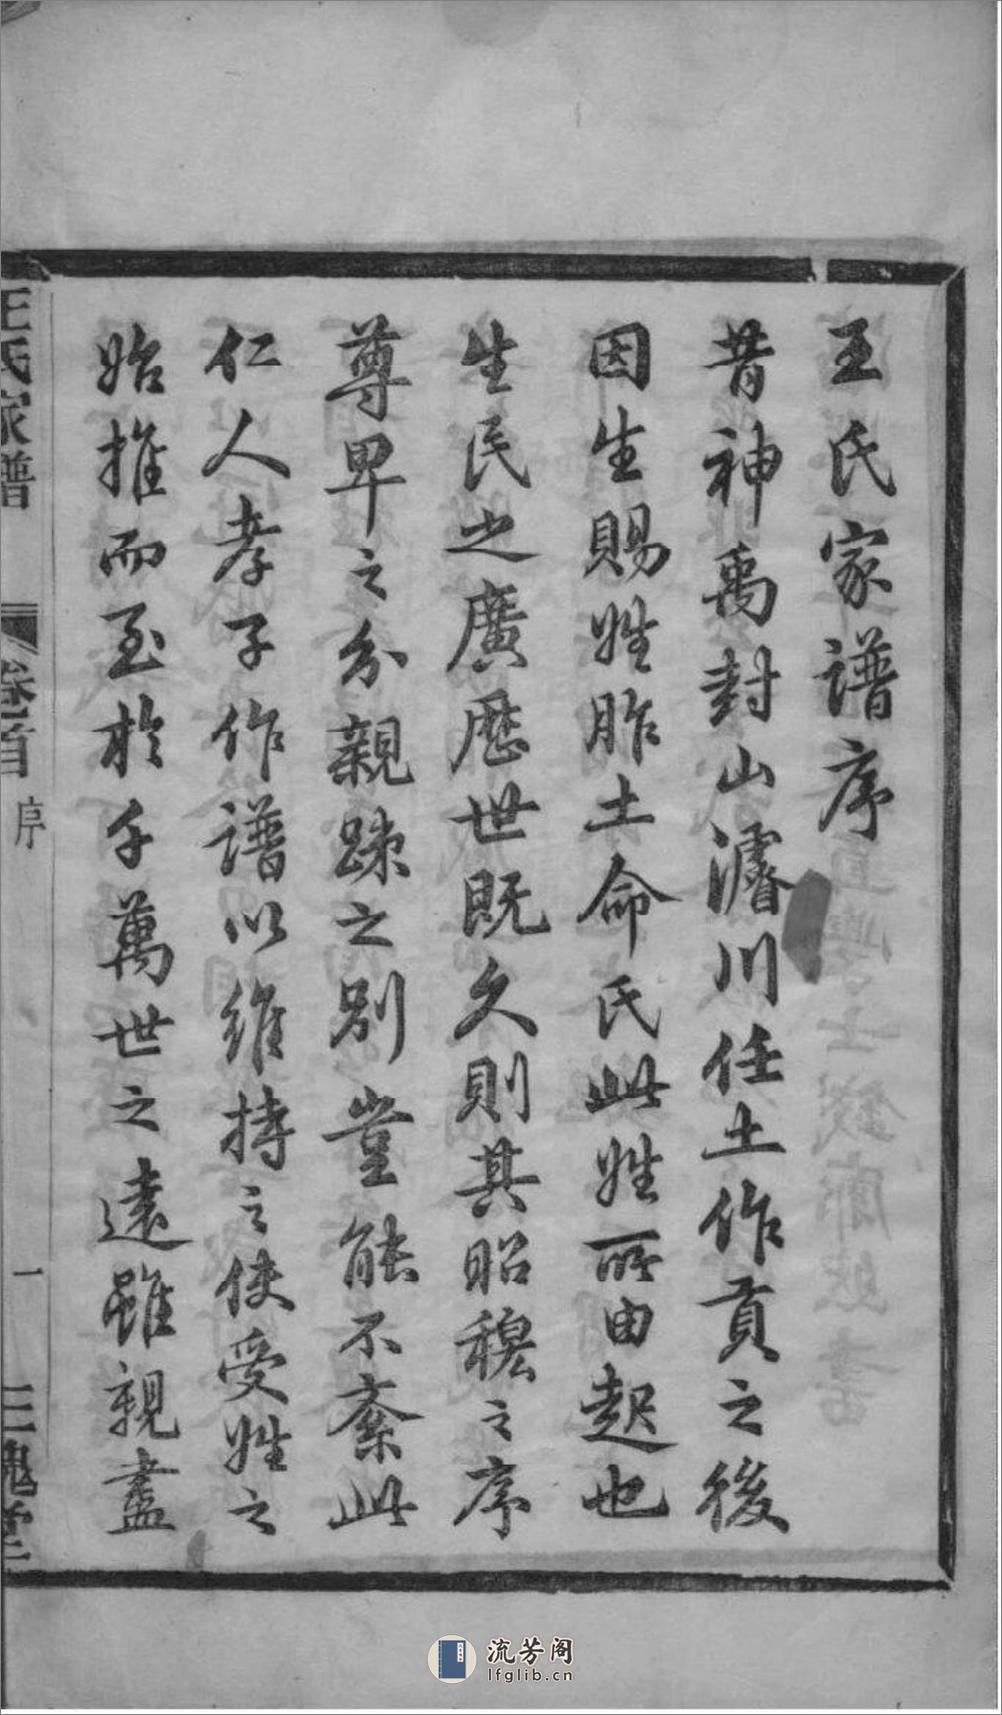 王氏家譜序
昔神禹封山濬川任土作貢之後
因生賜姓胙土命氏此姓所由起也
生民之廣歷世既久則其昭穆之序
尊卑之分親疎之別豈能不紊此
仁人孝子作譜以維持之使受姓之
始推而至於千萬世之遠雖親盡
王氏家譜
卷首
序
一
三槐堂
流芳阁
lfglib.cn